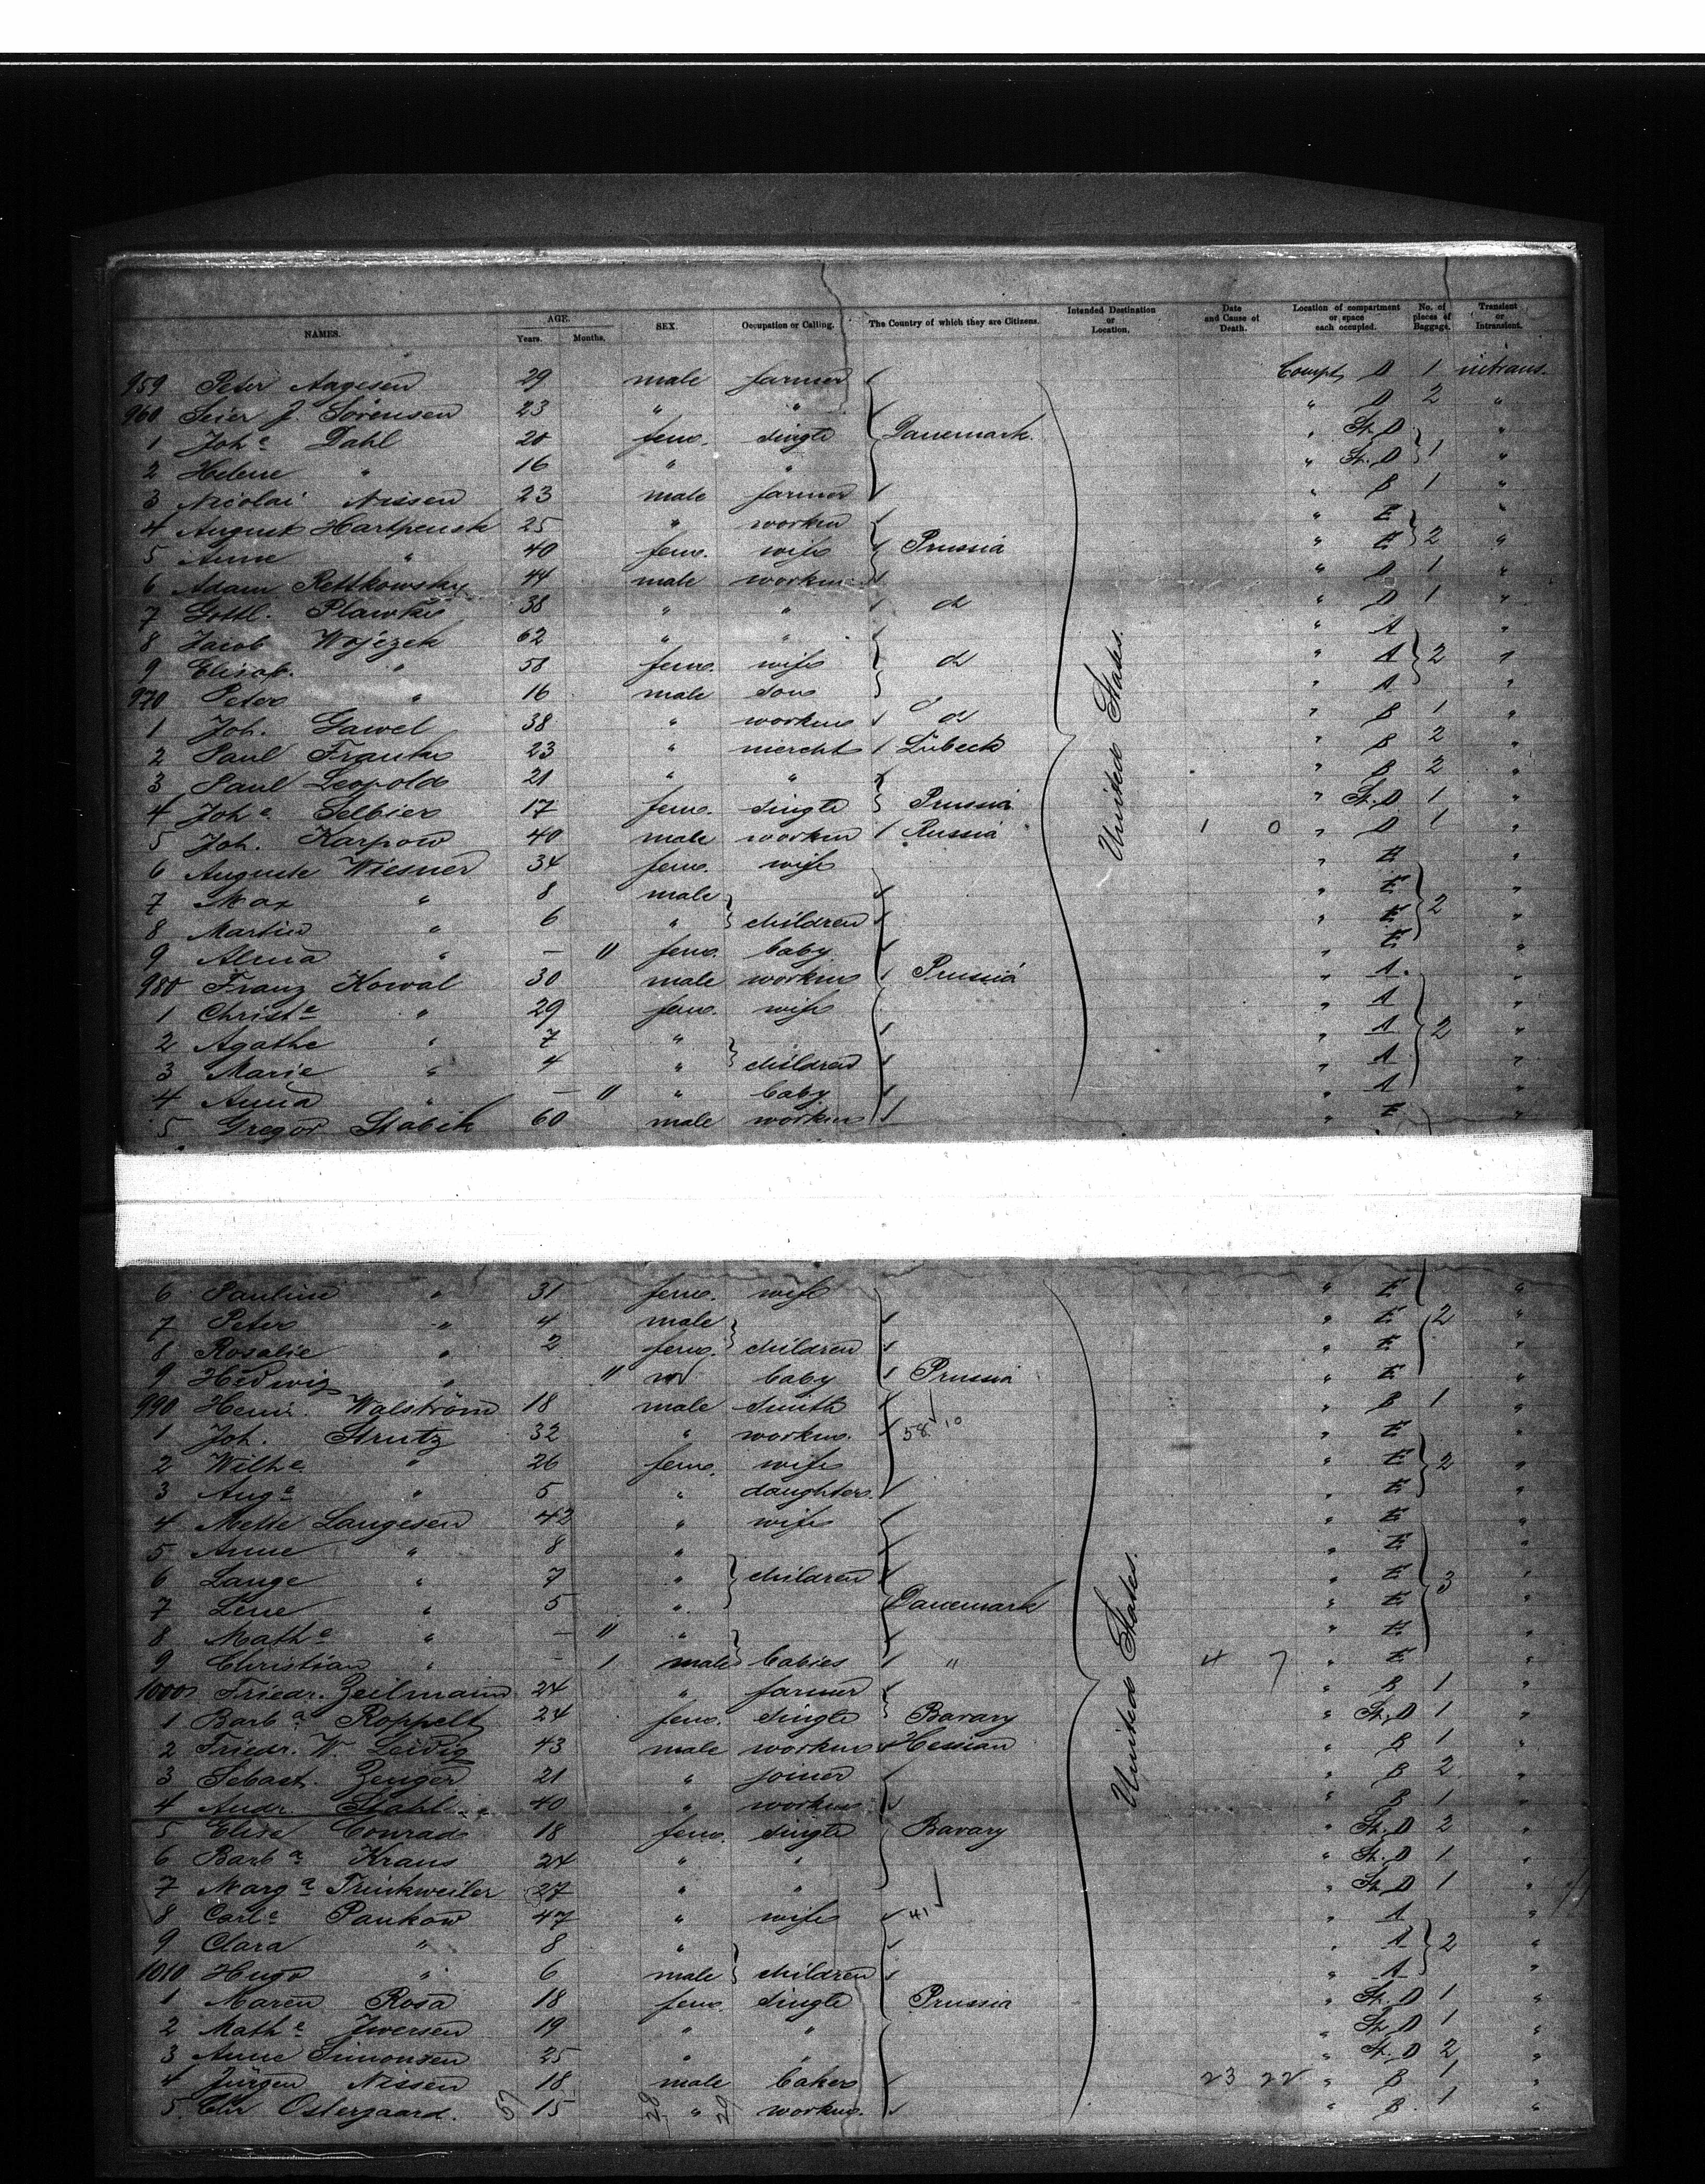 NAMES. AGE. Years. Months. SEX. Occupation or Calling. The Country of which they are Citizens. Intended Destination or Location. Date and Cause of Death. Location of compartment or space each occupied. No. of pieces of Baggage. Transient or Intransient.
959 Peter Aagesen 29 male farmer Compt. D 1 intrans.
960 Seier J. Sörensen 23 " " " D 2 "
1 Joh.e Dahl 20 fem. single Danemark. " St. D "
2 Helene " 16 " " " St. D 1 "
3 Nicolai Nissen 23 male farmer " B 1 "
4 August 25 " workm " E "
5 Anne " 40 fem. wife Prussia " E 2 "
6 Adam Rettkowsky 44 male workm " D 1 "
7 Gottl. Plawki 38 " " do " D 1 "
8 Jacob Wojczek 62 " " " A "
9 Elisab. " 58 fem. wife do " A 2 "
970 Peter " 16 male son " A "
1 Joh. Gawel 38 " workm do " B 1 "
2 Paul Franke 23 " mercht Lübeck " B 2 "
3 Paul Leopold 21 " " " B 2 "
4 Joh.e Selbier 17 fem. single Prussia " St. D 1 "
5 Joh. Karpow 40 male workm Russia 1 0 " D 1 "
6 Auguste Wiesner 34 fem. wife " E "
7 Max " 8 male " E "
8 Martin " 6 " children " E 2 "
9 Alma " — 11 fem. baby " E "
980 Franz Kowal 30 male workm Prussia " A "
1 Christ.e " 29 fem. wife " A "
2 Agathe " 7 " " A 2 "
3 Marie " 4 " children " A "
4 Anna " — 11 " baby " A "
5 Gregor Stabik 60 male workm " E "
United States.
6 Pauline " 31 fem. wife " E "
7 Peter " 4 male " E 2 "
8 Rosalie " 2 fem. children " E "
9 Hedwig " 11 baby Prussia " E "
990 Henr. Walström 18 male smith " B 1 "
1 Joh. Strutz 32 " workm. 58 10 " E "
2 Wilh.e " 26 fem. wife " E 2 "
3 Aug.e " 5 " daughter. " E "
4 Mette Langesen 42 " wife " E "
5 Anne " 8 " " E "
6 Lange " 7 " children " E 3 "
7 Lene " 5 " Danemark " E "
8 Math.e " — 11 " " E "
9 Christian " — 1 male babies " 4 7 " E "
1000 Friedr. Zeilmann 24 " farmer " B 1 "
1 Barb.a Roppelt 24 fem. single Bavary " St. D 1 "
2 Friedr. W. Leidig 43 male workm Hessian " B 1 "
3 Sebast. Zenger 21 " joiner " B 2 "
4 Andr. Stahl 40 " workm " B 1 "
5 Elise Conrad 18 fem. single Bavary " St. D 2 "
6 Barb.a Kraus 24 " " " St. D 1 "
7 Marg.a Trinkweiler 27 " " " St. D 1 "
8 Carl.e Pankow 47 " wife 41 " A "
9 Clara " 8 " " A 2 "
1010 Hugo " 6 male children " A "
1 Maren Rosa 18 fem. single Prussia " St. D 1 "
2 Math.e Iwersen 19 " " " St. D 1 "
3 Anne Simonsen 25 " " " St. D 2 "
4 Jürgen Nissen 18 male baker 23 22 " B 1 "
5 Chr Ostergaard. 57 15 28 " 29 workm. " B 1 "
United States.